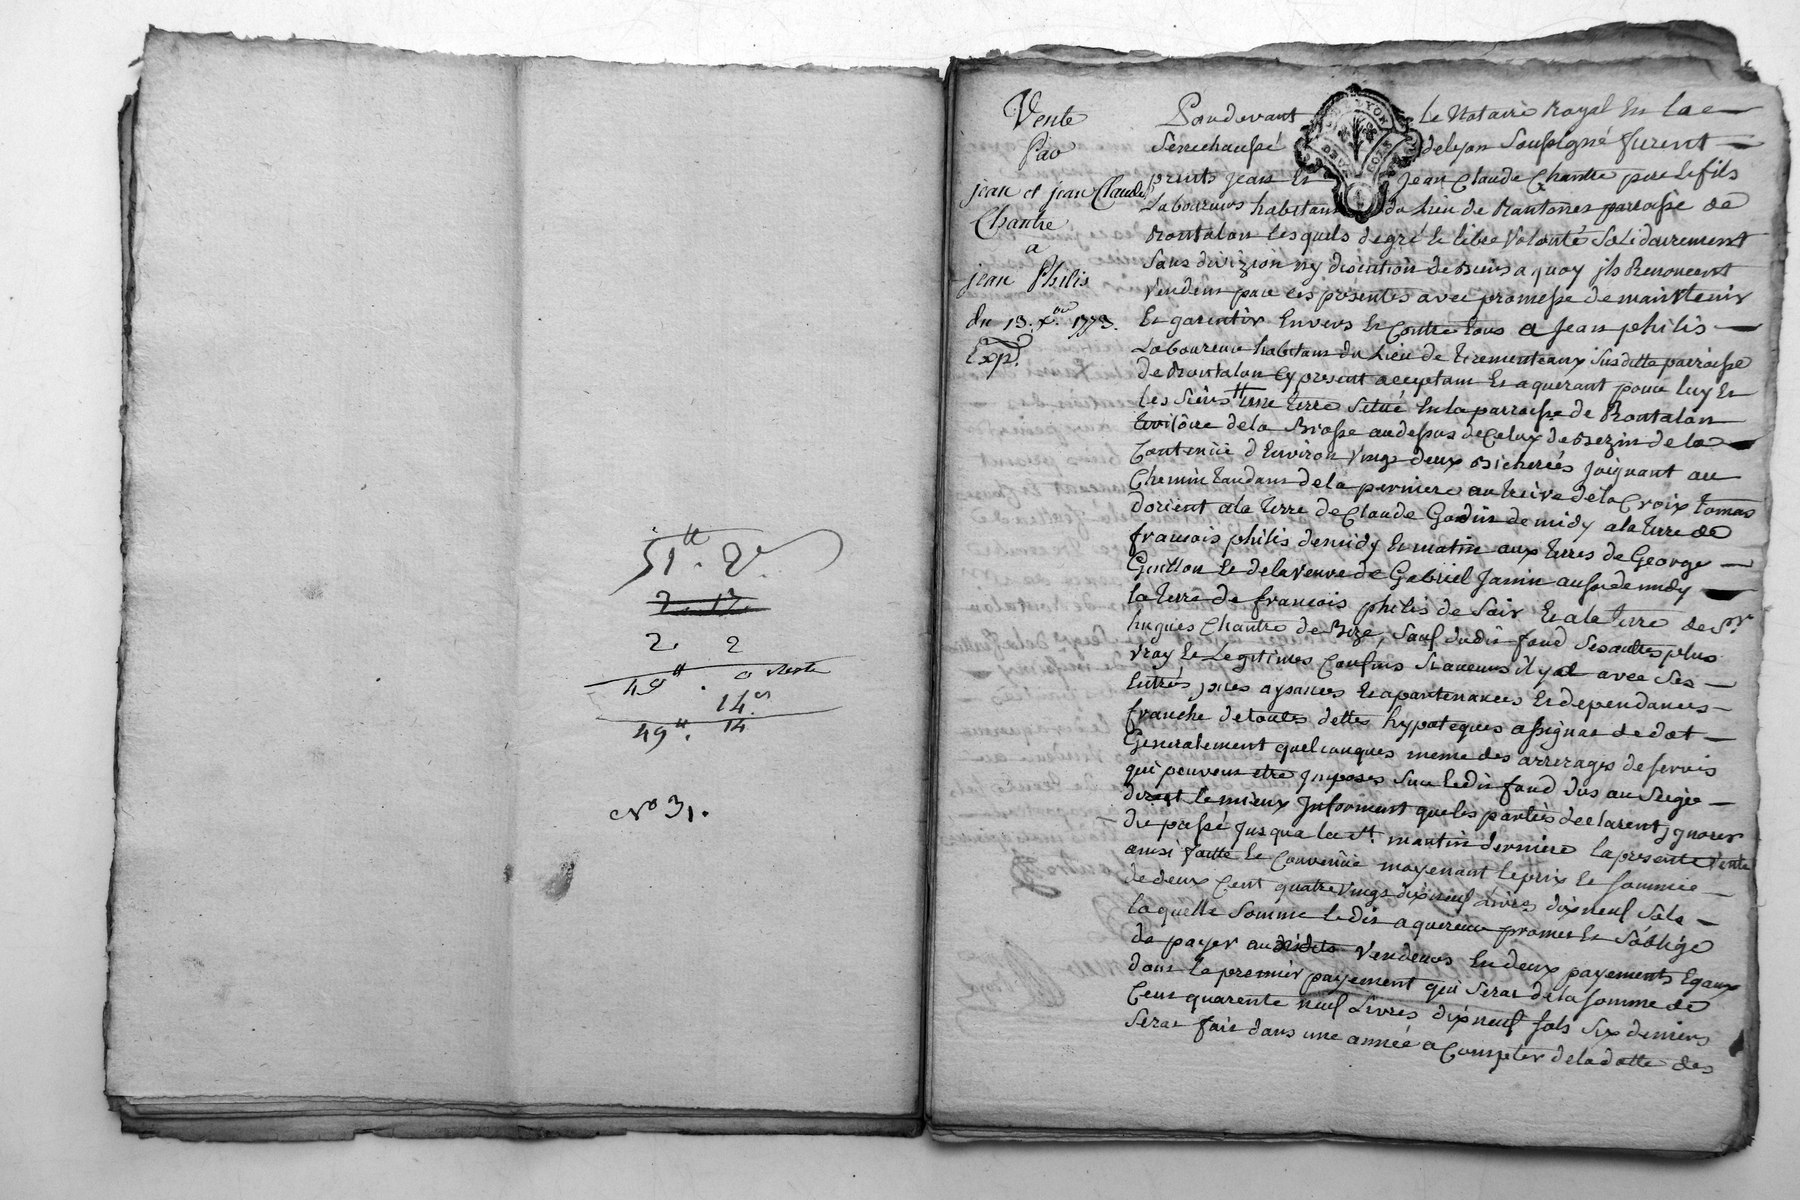 51.tt 2.s
2. 12
2. 2
49tt . 0 reste
14.s
49.tt 14
No 31.
Vente
Par
jean et jean Claude
Chantre
a
jean Philis
du 13. xbre 1773.
Exp.
Pardevant Le Notaire Royal En la
Senechaussé delyon Soussigné furent
prents Jean Et Jean Claude Chantre pere Et fils
Laboureurs habitans du Lieu de Rantonnes parroisse de
Rontalon Lesquels de gré Et libre Volonté Solidairement
Sans divizion ny discution de Biens a quoy ils Renoncent
Vendent par ces presentes avec promesse de maintenir
Et garentir Envers Et Contre tous a Jean philis
Laboureur habitant du Lieu de tirementeaux Susditte parroisse
de Rontalon Cy present acceptant Et aquerant pour luy Et
les Siens une terre Situé En la parroisse de Rontalon
territoire de la Brosse au dessus de Celuy de Bezin de la
Contenüe d'Environ Vingt deux Bicherées Joignant au
Chemin tandant de la perniere au treive de la Croix tomas
dorient a la terre de Claude Godin de midy a la terre de
francois philis de midy Et matin aux terres de George
Guillon Et de la Veuve de Gabriel Janin aussi de midy
la terre de francois philis de Soir Et a la terre de Sr
hugues Chantre de Bize, Sauf dudit fond Ses autres plus
Vray Et Legitimes Confins Si aucuns il y a avec Ses
Entrés, jssües aysances Et apartenances Et dependances
franche de toutes dettes hypoteques assignac de dot
Generalement quelconques meme des arrerages de Servis
qui peuvent etre jmposés Sur Ledit fond dus au Siege
direct le mieux Informent que les parties declarent jgnorer
du passé Jusqua la St martin derniere la presente Vente
ainsi faitte Et Convenüe moyenant le prix Et Somme
de deux Cent quatre Vingt dix neuf Livres dix neuf Sols
la quelle Somme Ledit aquereur promet Et S'oblige
de payer audits Vendeurs En deux payements Egaux
dont le premier payement qui Serat de la Somme de
Cent quarente neuf Livres dix neuf Sols Six deniers
Serat fait dans une année a Compter de la datte des